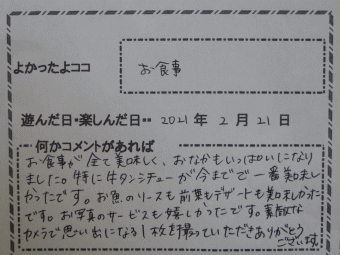 よかったよココ
お食事
遊んだ日・楽しんだ日・・ 2021年 2月 21日
何かコメントがあれば
お食事が全て美味しく、おなかもいっぱいになり
ました。特に牛タンシチューが今までで一番美味し
かったです。お魚のソースも前菜もデザートも美味しかった
です。お写真のサービスも嬉しかったです。素敵な
カメラで思い出になる1枚を撮っていただきありがとう
ございます。